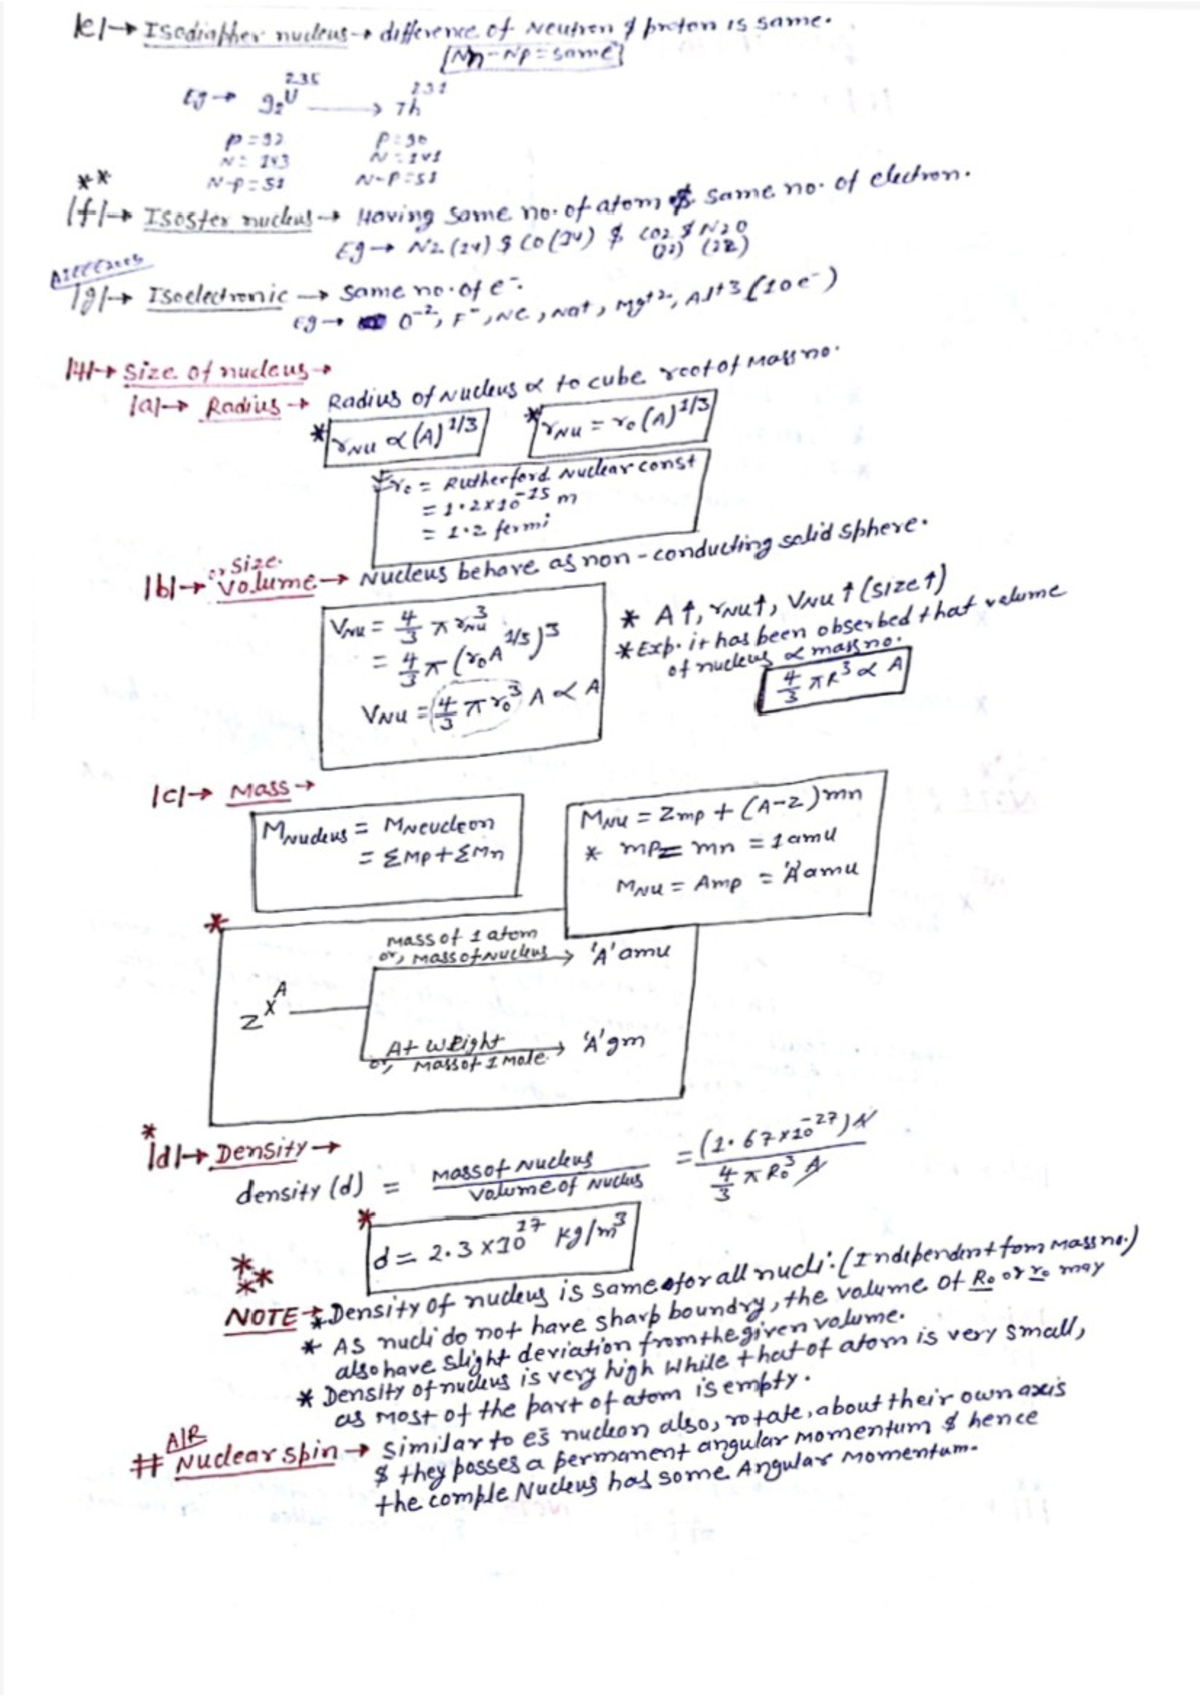 |e|→ Isodiapher nucleus → difference of Neutron & proton is same.
[Nn-Np = same]
Eg → 92U235 → Th231
P=92 P=90
N=143 N=141
N-P=51 N-P=51
**
|f|→ Isoster nucleus → Having same no. of atom & same no. of electron.
Eg → N2 (14) & CO (14) & CO2 & N2O
(22) (22)
AIEEE2005
|g|→ Isoelectronic → same no. of e-.
Eg → O-2, F-, Ne, Na+, Mg+2, Al+3 (10e-)
|4|→ Size of nucleus →
|a|→ Radius → Radius of Nucleus α to cube root of Mass no.
* rNu ∝ (A)1/3 * rNu = r0 (A)1/3
* r0 = Rutherford Nuclear const
= 1.2×10-15 m
= 1.2 fermi
|b|→ or Size. Volume → Nucleus behave as non-conducting solid sphere.
VNu = 4/3 π rNu3
= 4/3 π (r0 A1/3)3
VNu = (4/3 π r03) A ∝ A
* A↑, rNu↑, VNu↑ (size↑)
* Exp. it has been obserbed that volume
of nucleus ∝ mass no.
4/3 πR3 ∝ A
|c|→ Mass →
MNucleus = MNeucleon
= ΣMp + ΣMn
MNu = Zmp + (A-Z) mn
* mp = mn = 1 amu
MNu = Amp = 'A' amu
*
Mass of 1 atom
or, Mass of Nucleus → 'A' amu
ZXA
At Weight → 'A' gm
or, Mass of 1 mole
*
|d|→ Density →
density (d) = Mass of Nucleus / Volume of Nucleus = (1.67×10-27) A / 4/3 π R03 A
* d = 2.3×1017 kg/m3
***
NOTE → * Density of nucleus is same for all nucli. (Independent fom Mass no.)
* AS nucli do not have sharp boundry, the volume of R0 or r0 may
also have slight deviation from the given volume.
* Density of nucleus is very high while that of atom is very small,
as most of the part of atom is empty.
AIR
# Nuclear spin → similar to e-s nucleon also, rotate, about their own axis
& they posses a permanent angular momentum & hence
the comple Nucleus has some Angular Momentum.